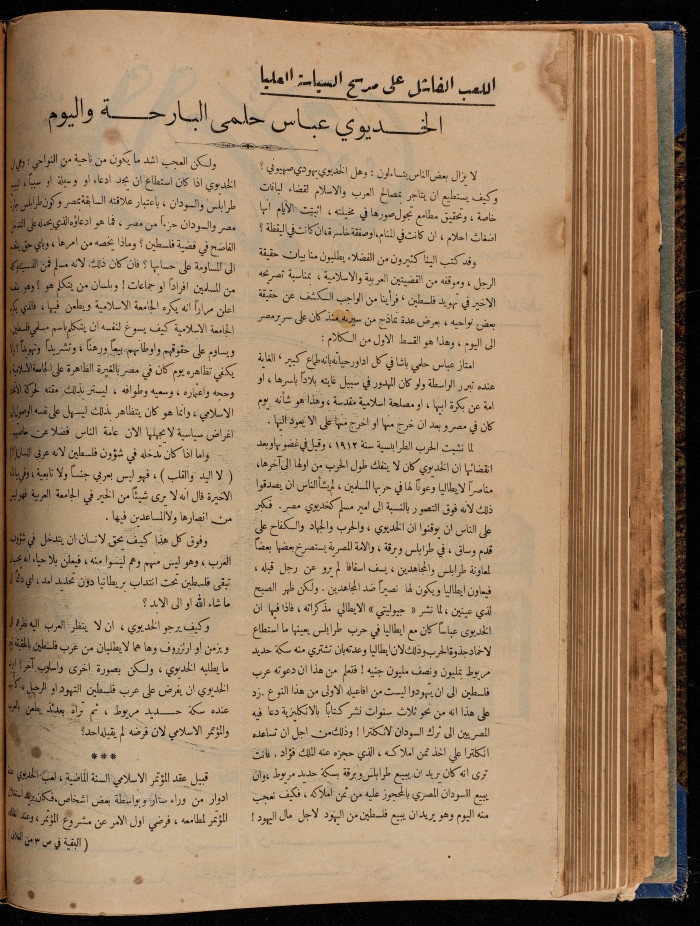 اللعب الفاشل على مسرح السياسة العليا
الخديوي عباس حلمى البارحة واليوم
لا يزال بعض الناس يتساءلون : وهل الخديوي يهودي صهيوني ؟
وكيف يستطيع ان يتاجر بمصالح العرب والاسلام لقضاء لبانات
خاصة ، وتحقيق مطامع تجول صورها في مخيلته ، اثبتت الأيام أنها
اضغاث احلام ، ان كانت في المنام ، اوصفقة خاسرة، ان كانت في اليقظة ؟
وقد كتب الينا كثيرون من الفضلاء يطلبون منا بيان حقيقة
الرجل ، وموقفه من القضيتين العربية والاسلامية ، بمناسبة تصريحه
الاخير في تهويد فلسطين ، فرأينا من الواجب الكشف عن حقيقة
بعض نواحيه ، بعرض عدة نماذج من سيرته منذ كان على سرير مصر
الى اليوم ، وهذا هو القسط الاول من الكلام :
امتاز عباس حلمي باشا في كل ادوار حياته بانه طماع كبير ، الغاية
عنده تبرر الواسطة ولو كان المهدور في سبيل غايته بلاداً باسرها ، او
امة عن بكرة ابيها ، او مصلحة اسلامية مقدسة ، وهذا هو شأنه يوم
كان في مصر وبعد ان خرج منها او اخرج منها على الا يعود اليها .
لما نشبت الحرب الطرابلسية سنة ١٩١٢ ، وقيل في غضونها وبعد
انقضائها ان الخديوي كان لا ينفك طول الحرب من اولها الى آخرها،
مناصراً لايطاليا وعوناً لها في حربها المسلمين ، لم يشأ الناس ان يصدقوا
ذلك لانه فوق التصور بالنسبة الى امير مسلم كخديوي مصر . فكبر
على الناس ان يوقنوا ان الخديوي ، والحرب والجهاد والكفاح على
قدم وساق ، في طرابلس وبرقة ، والامة المصرية يستصرخ بعضها بعضاً
لمعاونة طرابلس والمجاهدين ، يسف اسفافا لم يرو عن رجل قبله ،
فيعاون ايطاليا ويكون لها نصيراً ضد المجاهدين . ولكن ظهر الصبح
لذي عينين ، لما نشر « جيوليتي » الايطالي مذكراته ، فاذا فيها ان
الخديوى عباساً كان مع ايطاليا في حرب طرابلس يعينها ما استطاع
لاخماد جذوة الحرب وذلك لان ايطاليا وعدته بان تشتري منه سكة حديد
مربوط بمليون ونصف مليون جنيه ! فتعلم من هذا ان دعوته عرب
فلسطين الى ان يتهودوا ليست من افاعيله الاولى من هذا النوع . زد
على هذا انه من نحو ثلاث سنوات نشر كتاباً بالانكليزية دعا فيه
المصريين الى ترك السودان لانكلترا ! وذلك من اجل ان تساعده
انكلترا على اخذ ثمن املاكه ، الذي حجزه عنه الملك فؤاد . فانت
ترى انه كان يريد ان يبيع طرابلس وبرقة بسكة حديد مربوط ، وان
يبيع السودان المصري بالمحجوز عليه من ثمن املاكه ، فكيف تعجب
منه اليوم وهو يريد ان يبيع فلسطين من اليهود لاجل مال اليهود !
ولكن العجب اشد ما يكون من ناحية من النواحي : وهي ان
الخديوي اذا كان استطاع ان يجد ادعاء او وسيلة او سبباً ، لبيع
طرابلس والسودان ، باعتبار علاقته السابقة بمصر وكون طرابلس جارة
مصر والسودان جزءاً من مصر ، فما هو ادعاؤه الذي يحمله على التدخل
الفاضح في قضية فلسطين ؟ وماذا يخصه من امرها ، وباي حق
الى المساومة على حسابها ؟ فان كان ذلك لانه مسلم فمن الذي وكله
من المسلمين افراداً او جماعات ! وبلسان من يتكلم هو ؟ وهو
اعلن مراراً انه يكره الجامعة الاسلامية ويطعن فيها ، فالذي يكره
الجامعة الاسلامية كيف يسوغ لنفسه ان يتكلم باسم مسلمي فلسطين
ويساوم على حقوقهم واوطانهم بيعاً ورهناً ، وتشريداً وتهويداً !
يكفي تظاهره يوم كان في مصر بالغيرة الظاهرة على الجامعة الاسلامية
وحجه واعتماره ، وسعيه وطوافه ، ليستر بذلك مقته لحركة
الاسلامي ، وانما هو كان يتظاهر بذلك ليسهل على نفسه الوصول الى
اغراض سياسية لا يجهلها الان عامة الناس فضلا عن خاصتهم
واما اذا كان تدخله في شؤون فلسطين لانه عربي اللسان
( لا اليد والقلب ) ، فهو ليس بعربي جنساً ولا تابعية ، وفي
الاخيرة قال انه لا يرى شيئاً من الخير في الجامعة العربية فهو ليس
من انصارها ولا المساعدين فيها .
وفوق كل هذا كيف يحق لانسان ان يتدخل في شؤون
العرب ، وهو ليس منهم وهم ليسوا منه ، فيعلن بلا حياء انه يجب
تبقى فلسطين تحت انتداب بريطانيا دون تحديد امد ، اي
ما شاء الله او الى الابد ؟
وكيف يرجو الخديوي ، ان لا ينظر العرب اليه نظرهم الى
ويزمن او ارلزروف وها هما لا يطلبان من عرب فلسطين بالحقيقة
ما يطلبه الخديوي ، ولكن بصورة اخرى واسلوب آخر !
الخديوي ان يفرض على عرب فلسطين التهود او الرحيل ،
عنده سكة حديد مربوط ، ثم تراه بعدئذ يطعن بالعرب
والمؤتمر الاسلامي لان قرضه لم يقبله احد ؟
***
قبيل عقد المؤتمر الاسلامي السنة الماضية ، لعب الخديوي عدة
ادوار من وراء ستار وبواسطة بعض اشخاص، فكان يريد استغلال
المؤتمر لمطامعه ، فرضي اول الامر عن مشروع المؤتمر ، وعند
( البقية في ص ٣ من الغلاف )